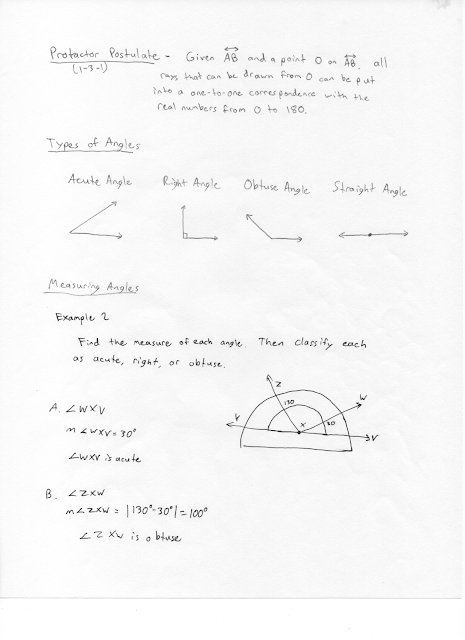 Protractor Postulate - Given AB and a point O on AB, all
(1-3-1)
rays that can be drawn from O can be put
into a one-to-one correspondence with the
real numbers from 0 to 180.
Types of Angles
Acute Angle Right Angle Obtuse Angle Straight Angle
Measuring Angles
Example 2
Find the measure of each angle. Then classify each
as acute, right, or obtuse.
A. ∠WXV
m∠WXV = 30°
∠WXV is acute
B. ∠ZXW
m∠ZXW = |130°-30°| = 100°
∠ZXW is obtuse
Z
130
W
Y
X
30
V